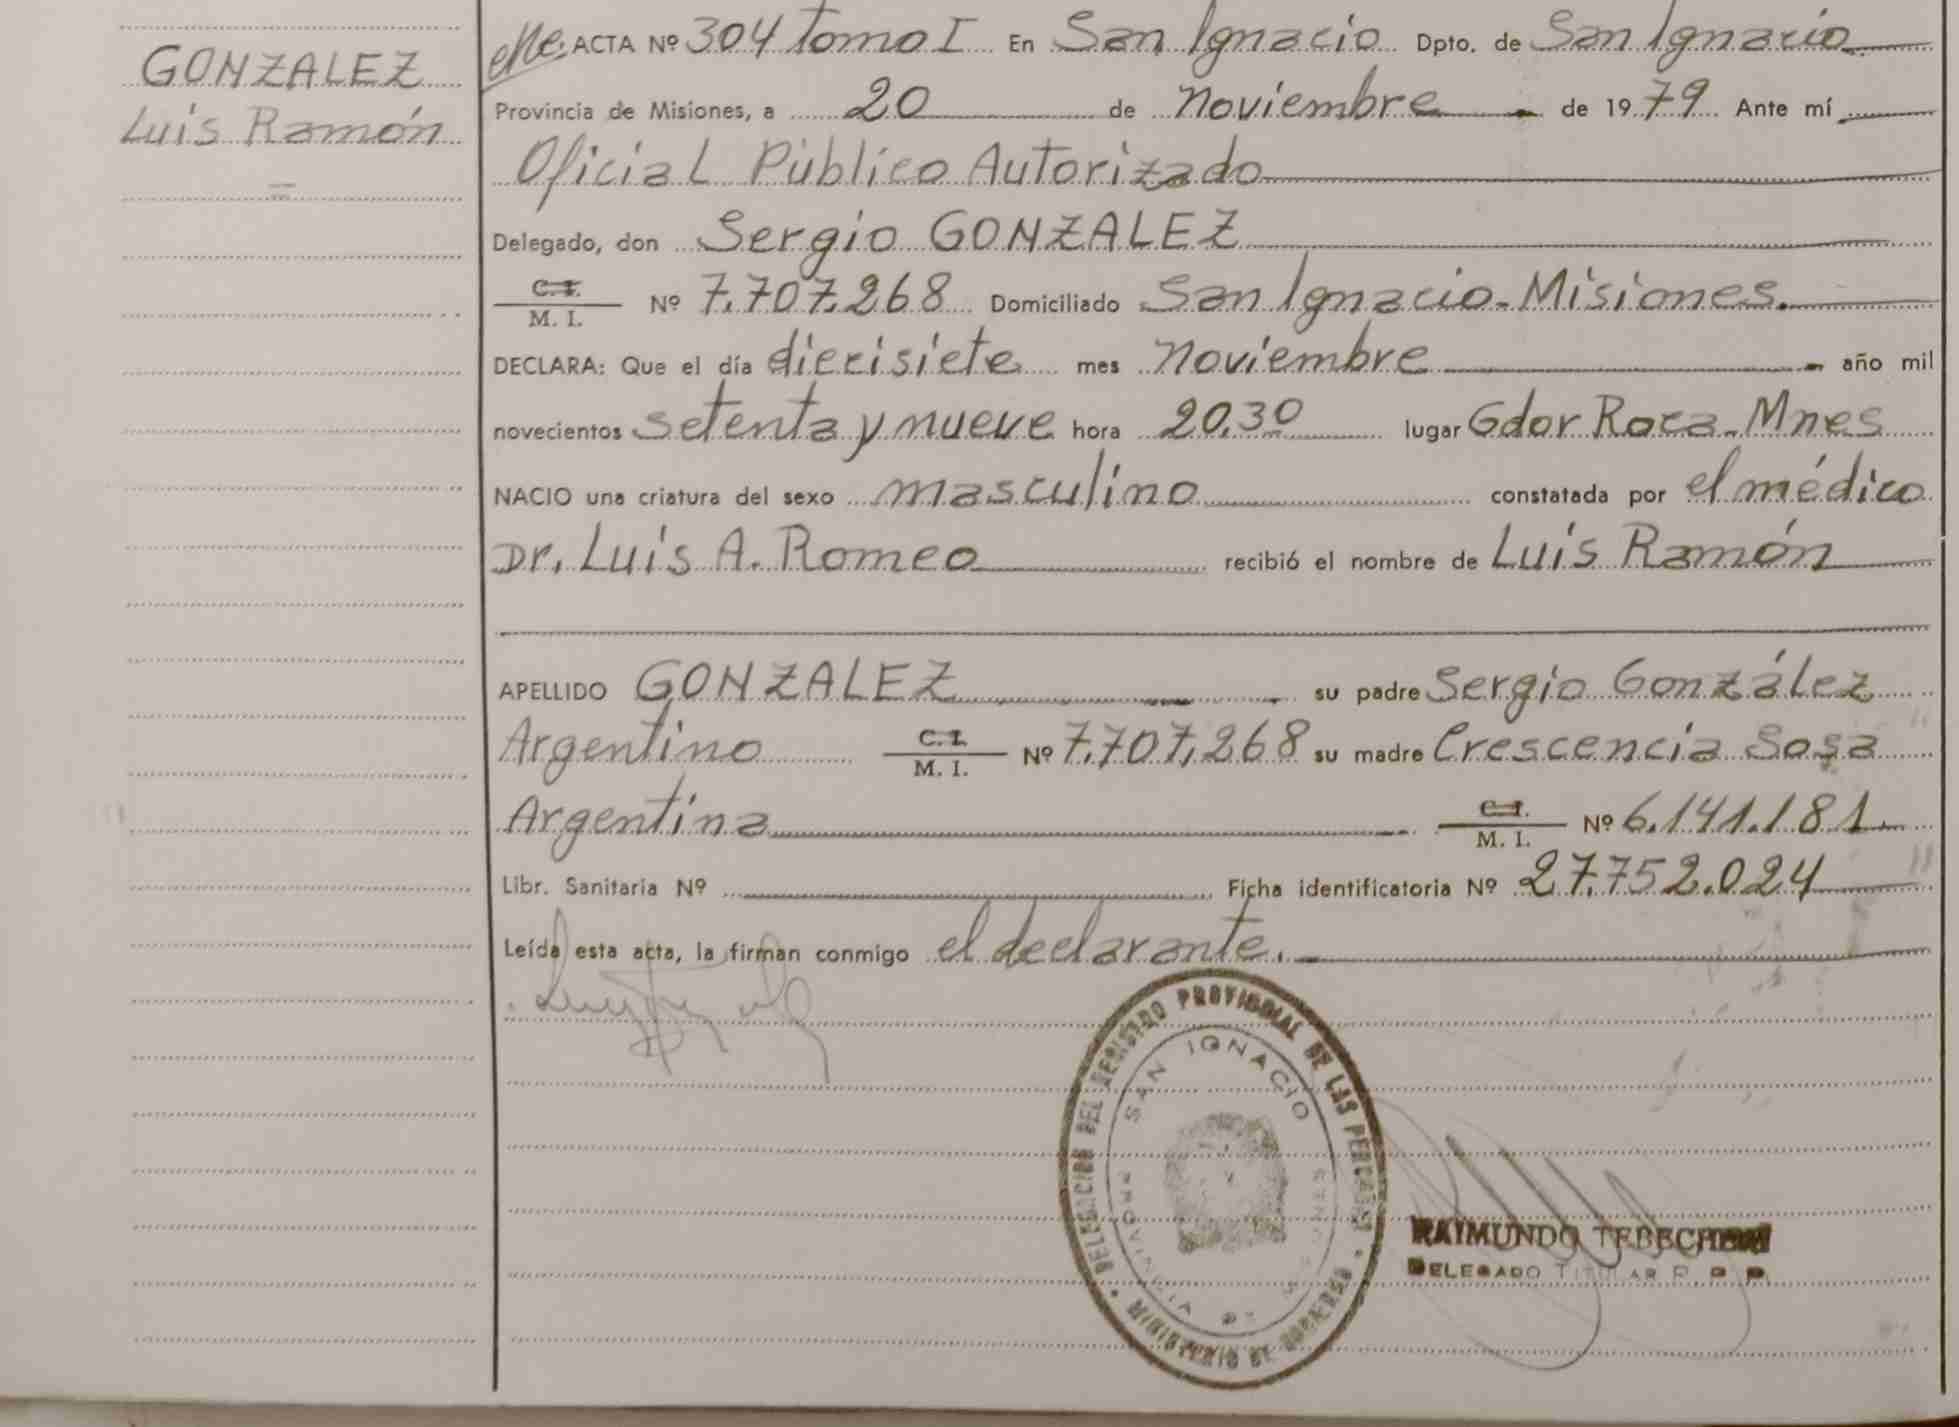 GONZALEZ
Luis Ramón
ACTA Nº 304 tomo I En San Ignacio Dpto. de San Ignacio
Provincia de Misiones, a 20 de noviembre de 1979 Ante mí
Oficial Público Autorizado
Delegado, don Sergio GONZALEZ
C. I.
M. I. Nº 7.707.268 Domiciliado San Ignacio-Misiones.
DECLARA: Que el día diecisiete mes noviembre año mil
novecientos setenta y nueve hora 20.30 lugar Gdor Roca-Mnes
NACIO una criatura del sexo masculino constatada por el médico
Dr. Luis A. Romeo recibió el nombre de Luis Ramón
APELLIDO GONZALEZ su padre Sergio González
Argentino C. I.
M. I. Nº 7.707.268 su madre Crescencia Sosa
Argentina C. I.
M. I. Nº 6.141.181.
Libr. Sanitaria Nº Ficha identificatoria Nº 27.752.024
Leída esta acta, la firman conmigo el declarante.
DELEGACION DEL REGISTRO PROVINCIAL DE LAS PERSONAS
SAN IGNACIO
PROVINCIA DE MISIONES
RAIMUNDO
DELEGADO TITULAR R. P. P.